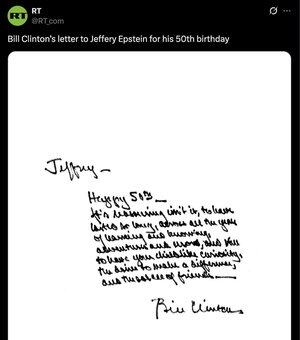 RT
@RT_com
Bill Clinton's letter to Jeffery Epstein for his 50th birthday
Jeffrey—
Happy 50th—
It's reassuring isn't it, to have
lasted as long, across all the years
of learning and knowing,
adventures and and
to have your childlike curiosity,
the drive to make a difference,
and the solace of friends—
Bill Clinton